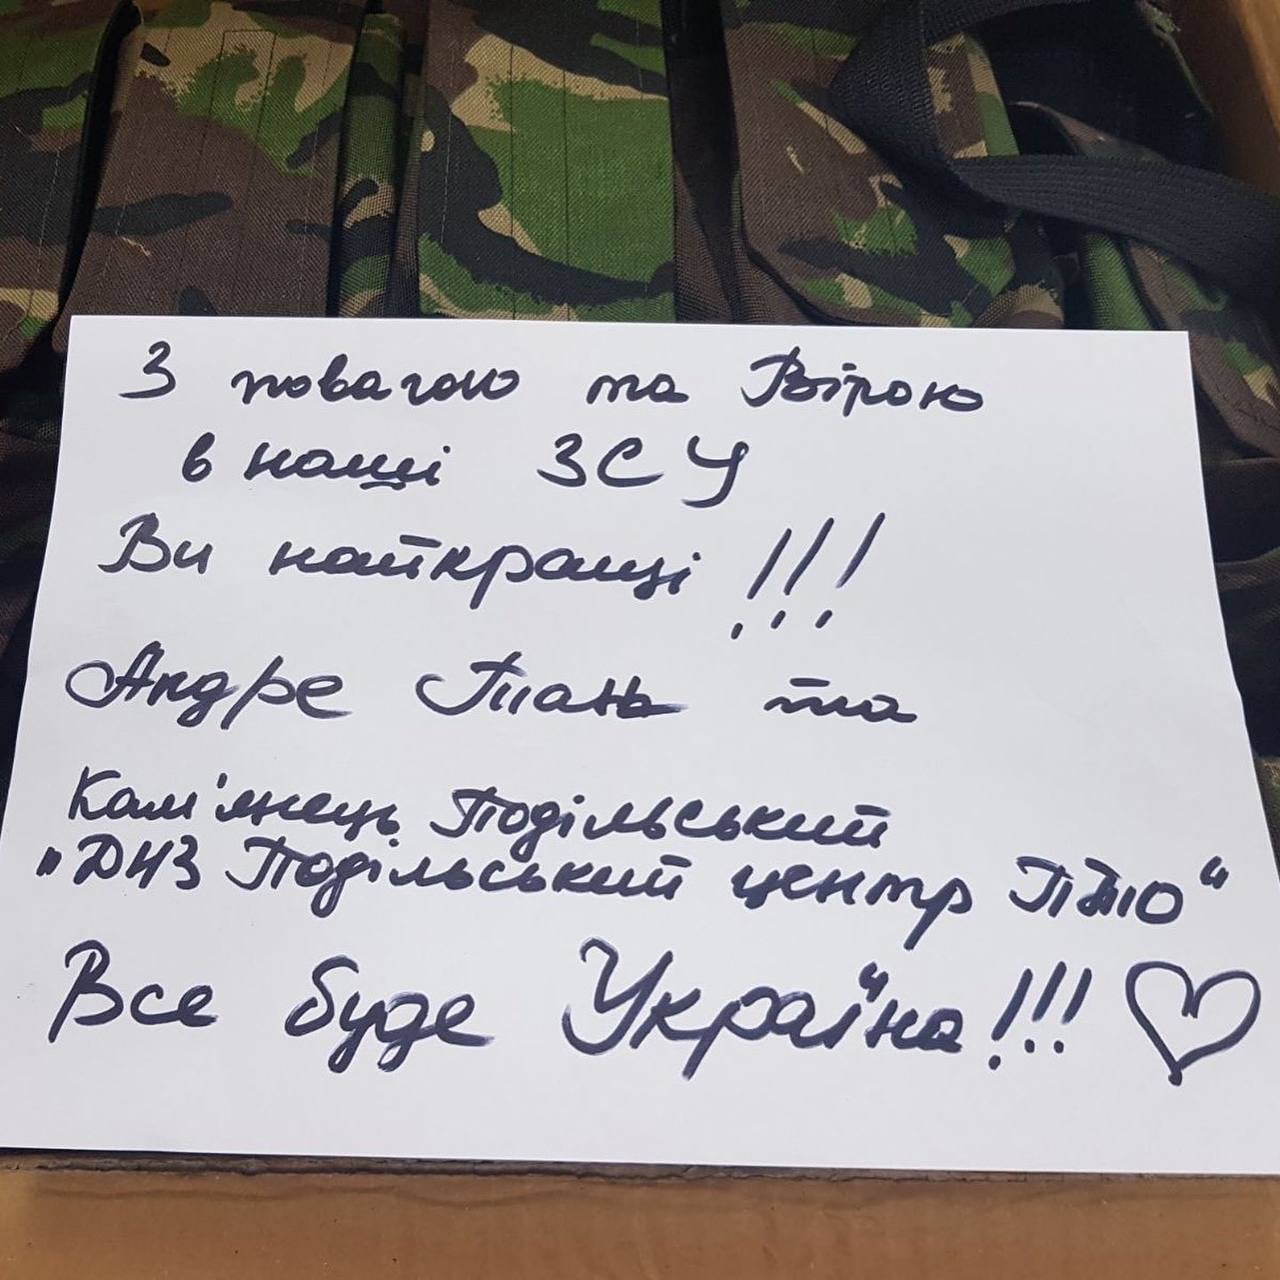 З повагою та Вірою
в наші ЗСУ
Ви найкращі !!!
Андре Тань та
Кам'янець Подільський
"ДНЗ Подільський центр ПТО"
Все буде Україна!!!